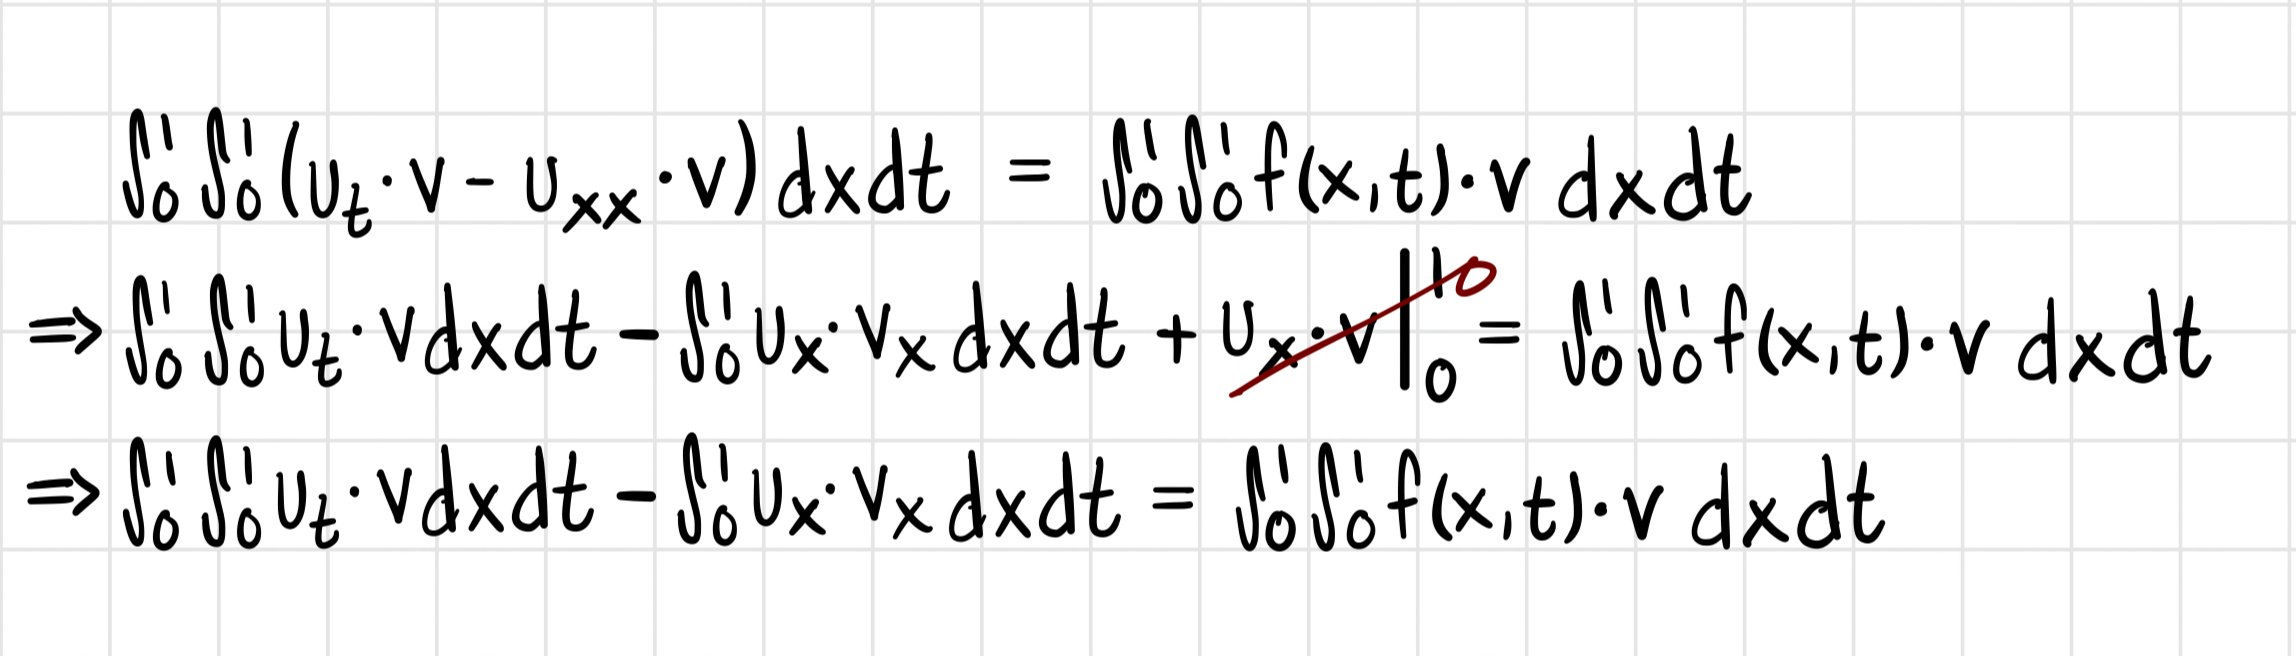 ∫₀¹∫₀¹(u_t·v − u_xx·v)dxdt = ∫₀¹∫₀¹f(x,t)·v dxdt
⇒ ∫₀¹∫₀¹u_t·vdxdt − ∫₀¹u_x·v_x dxdt + u_x·v|₀¹ 0 = ∫₀¹∫₀¹f(x,t)·v dxdt
⇒ ∫₀¹∫₀¹u_t·vdxdt − ∫₀¹u_x·v_x dxdt = ∫₀¹∫₀¹f(x,t)·v dxdt